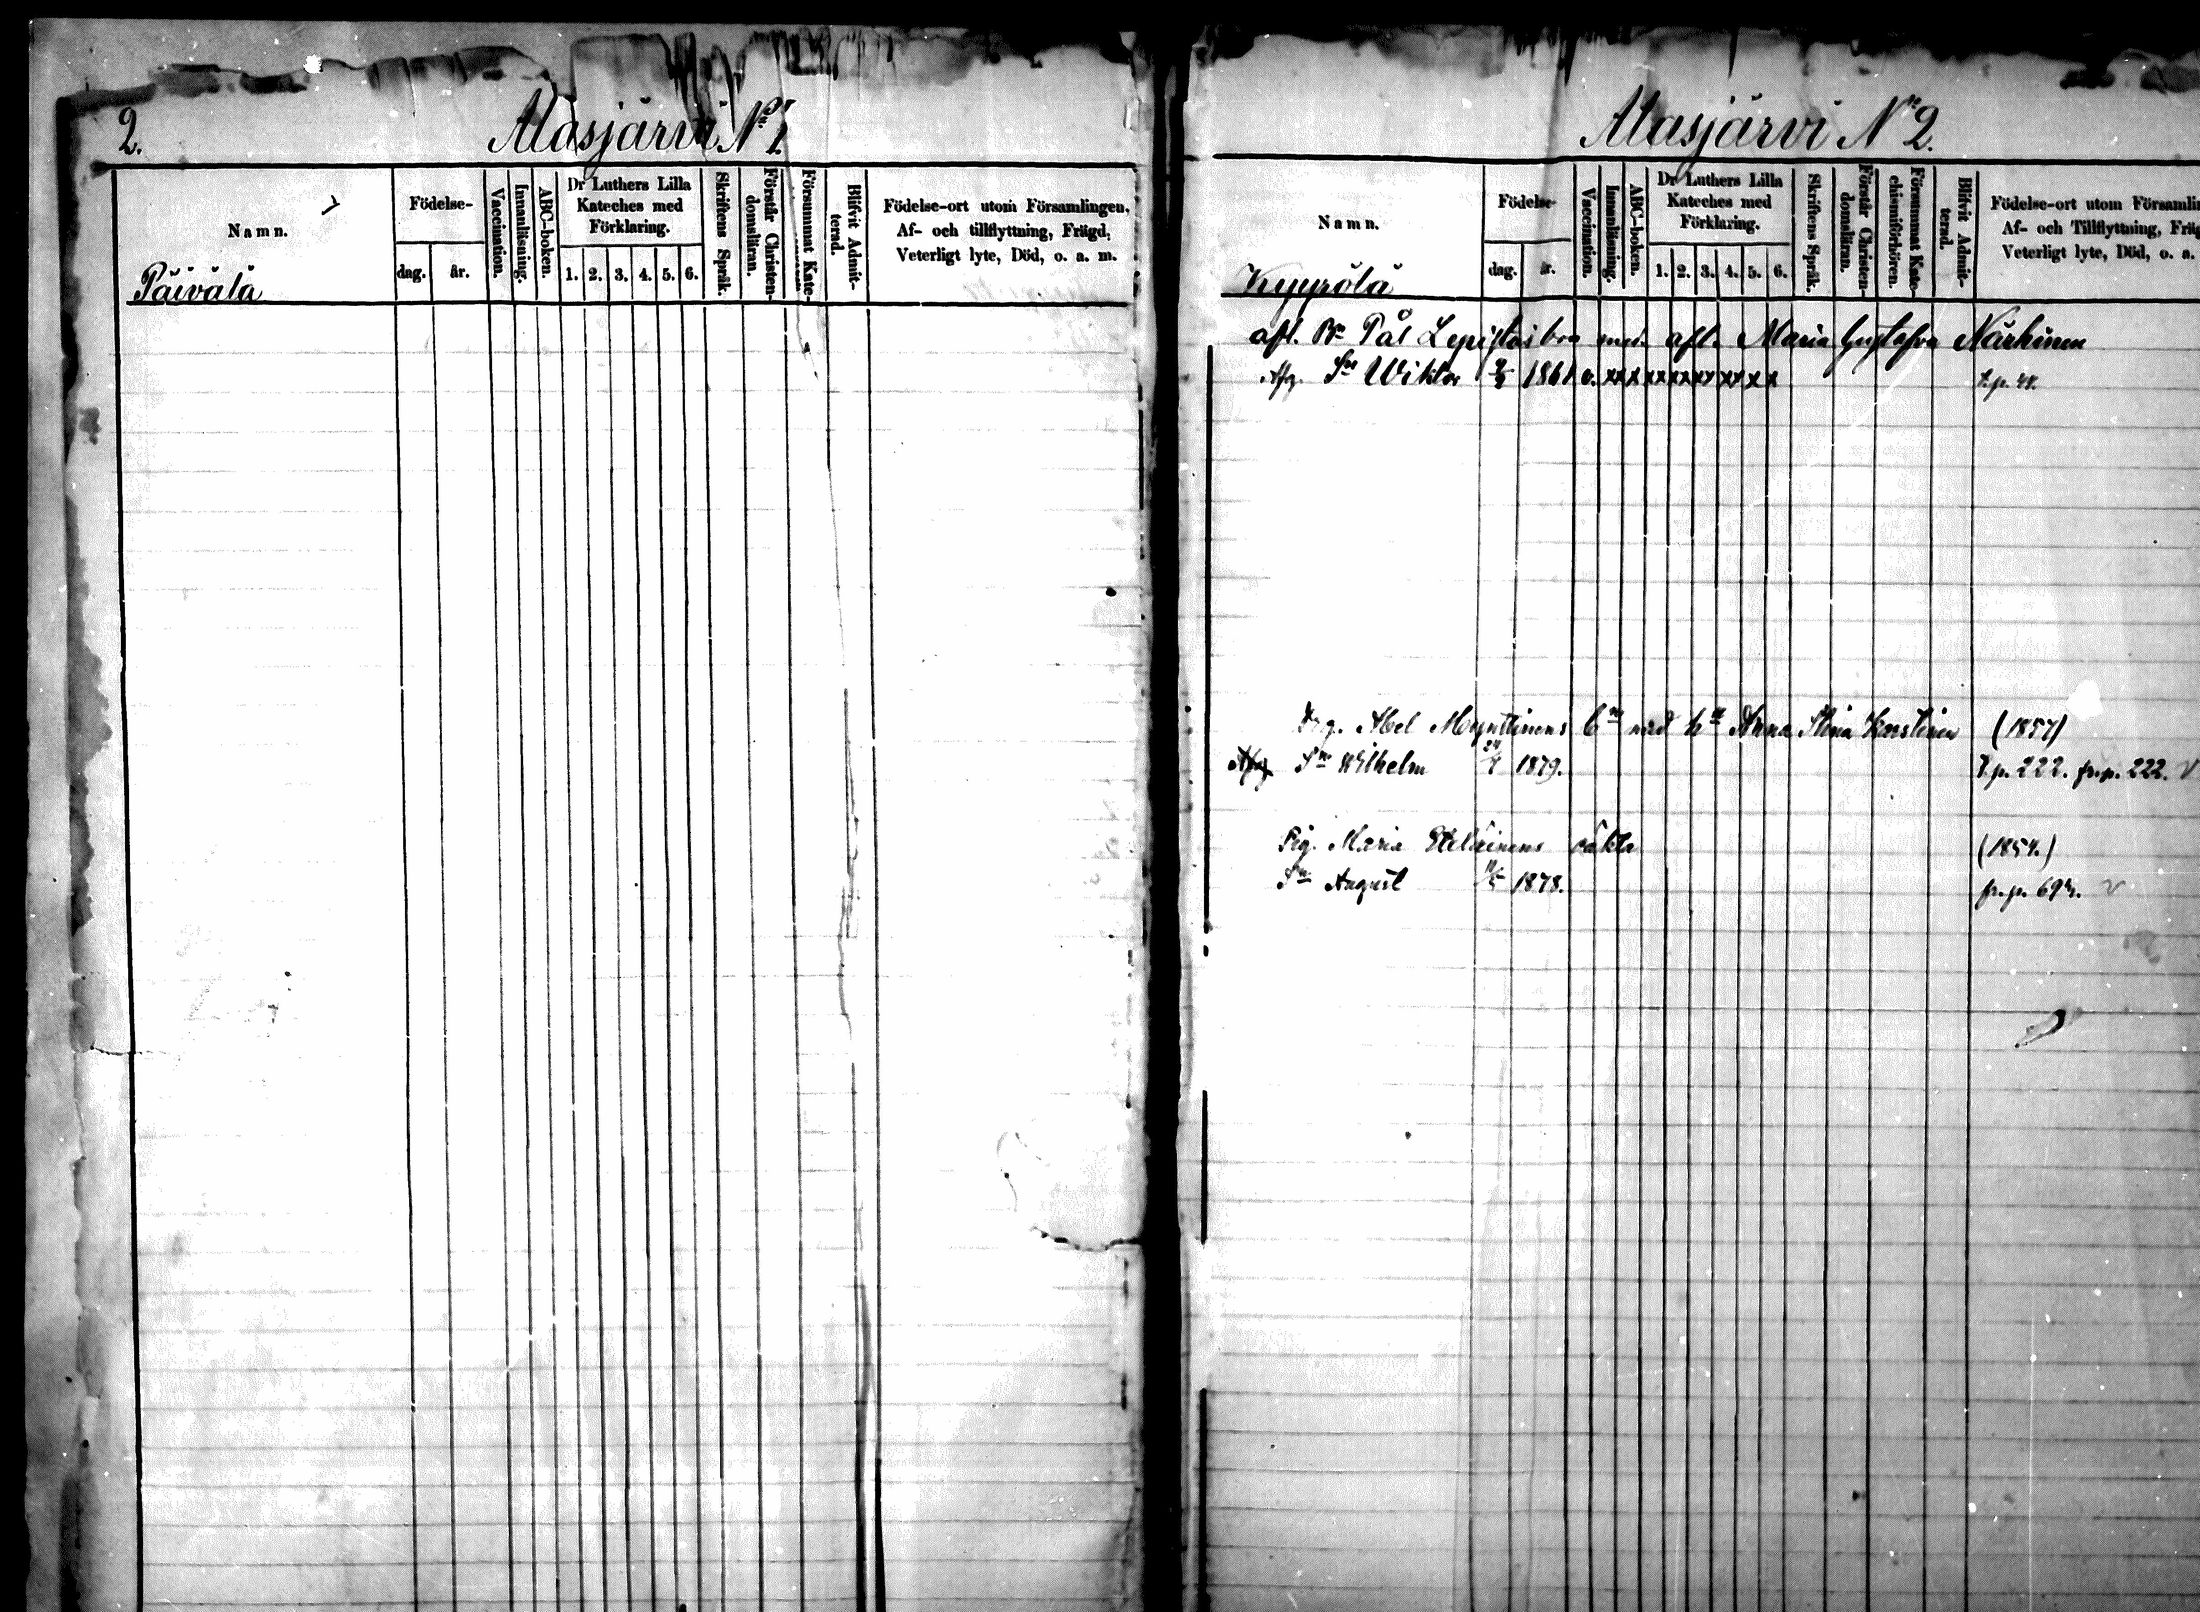 2.
Alasjärvi No 1.
Namn.
Födelse-
dag. år.
Vaccination.
Innanläsning.
ABC-boken.
Dr Luthers Lilla Kateches med Förklaring.
1. 2. 3. 4. 5. 6.
Skriftens Språk.
Förstår Christendomsläran.
Försummat Kate-
Blifvit Admitterad.
Födelse-ort utom Församlingen.
Af- och tillflyttning, Frägd,
Veterligt lyte, Död, o. a. m.
Päivälä
Alasjärvi No 2.
Namn.
Födelse-
dag. år.
Vaccination.
Innanläsning.
ABC-boken.
Dr Luthers Lilla Kateches med Förklaring.
1. 2. 3. 4. 5. 6.
Skriftens Språk.
Förstår Christendomsläran.
Försummat Katechismiförhören.
Blifvit Admitterad.
Födelse-ort utom Församlin
Af- och Tillflyttning, Fräg
Veterligt lyte, Död, o. a.
Kyyrölä
afl. Bn Pål Lepistöi brn med afl. Maria Gustafva Närhinen
Afg. Sn Wiktor 1861 v. x x x x x x x x x x
Abel Myntinens med Anna Stina Korstinen (1857)
Afg. Sn Wilhelm 24/4 1879. T.p. 222. fr.p. 222. v
Pig. Maria Eteläinens oäkta (1854.)
Sn August 1878. fr.p. 694. v